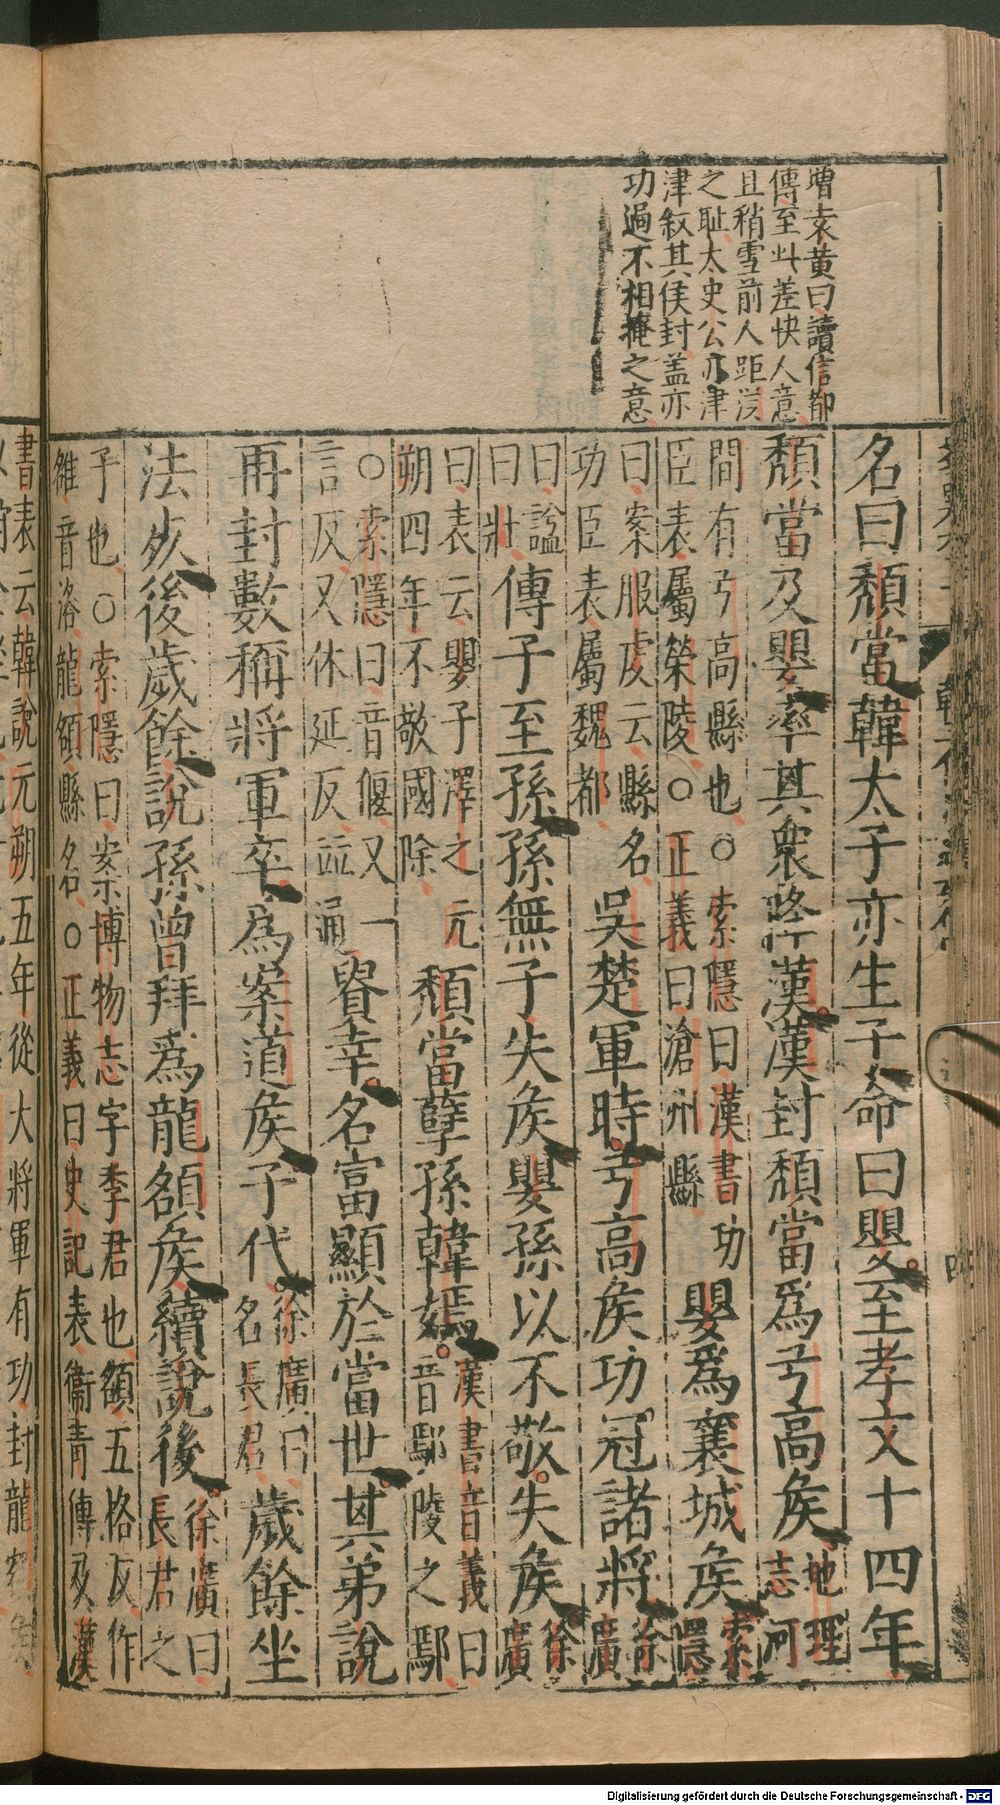 增袁黄曰讀信都
傳至此差快人意
且稍雪前人距漢
之耻太史公亦津
津叙其侯封盖亦
功過不相掩之意
名曰頽當韓太子亦生子命曰嬰至孝文十四年
頽當及嬰率其衆降漢漢封頽當爲弓高矦地理志河
間有弓高縣也○索隱曰漢書功臣表屬榮陵○正義曰滄州縣嬰爲襄城矦索隱
曰案服虔云縣名功臣表屬魏都吳楚軍時弓高矦功冠諸將徐廣
曰謚曰壯傳子至孫孫無子失矦嬰孫以不敬失矦徐廣
曰表云嬰子澤之元朔四年不敬國除頽當孽孫韓嫣漢書音義曰音鄢陵之鄢
○索隱曰音偃又一言反又休延反並通貴幸名富顯於當世其弟說
再封數稱將軍卒爲案道矦子代徐廣曰名長君歲餘坐
法死後歲餘說孫曾拜爲龍頟矦續說後徐廣曰長君之
子也○索隱曰案博物志字季君也頟五格反作雒音洛龍頟縣名○正義曰史記表衞青傳及漢
書表云韓說元朔五年從大將軍有功封龍頟矦
Digitalisierung gefördert durch die Deutsche Forschungsgemeinschaft - DFG